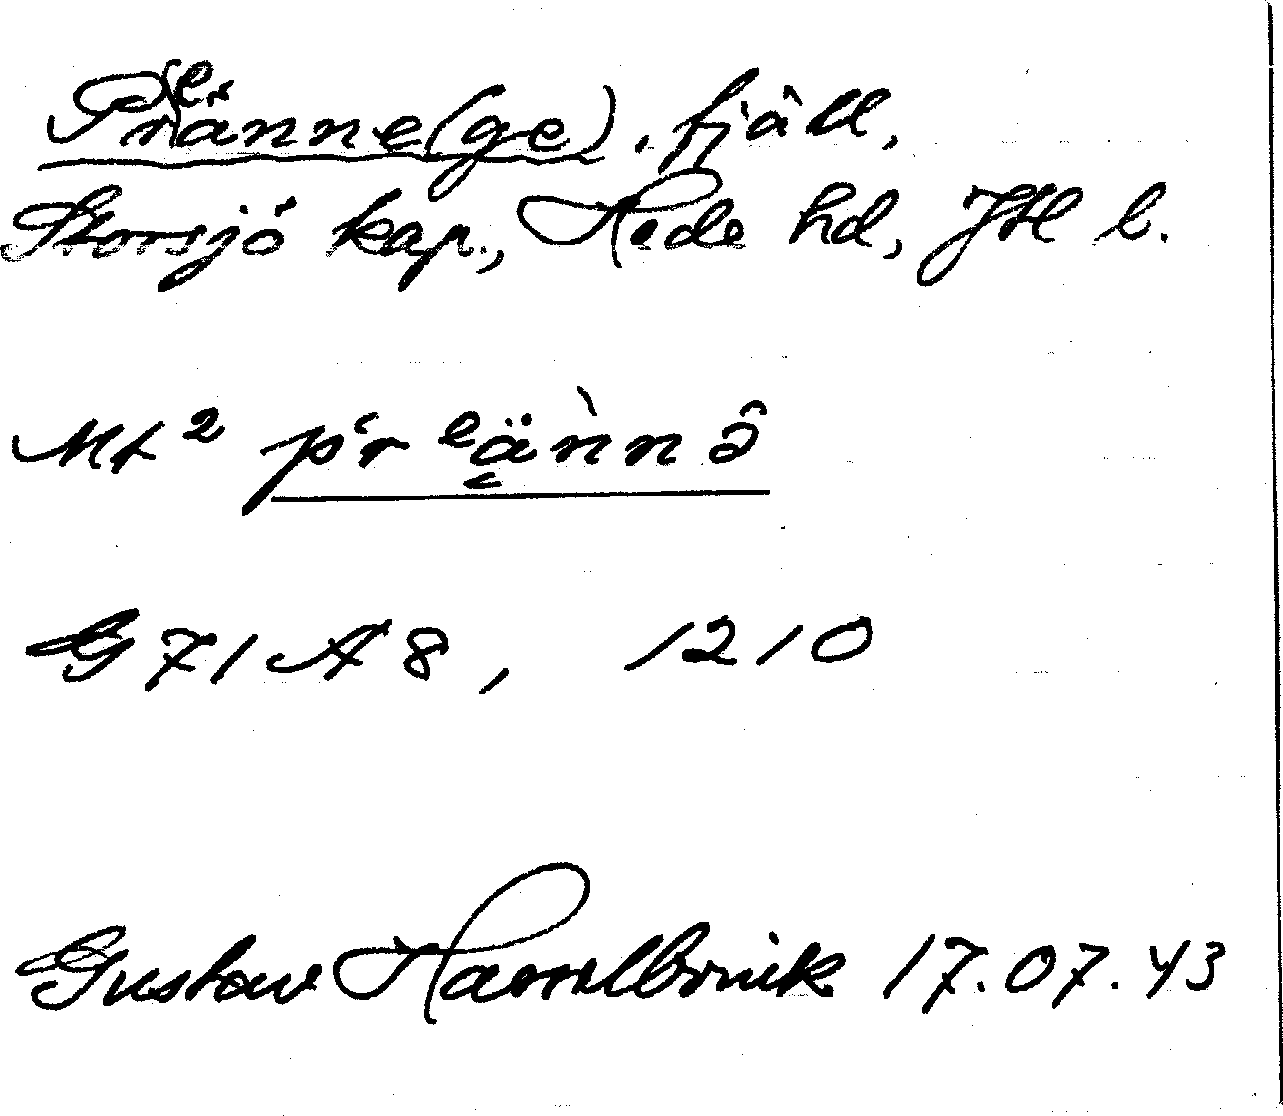 Prᵉänne(ge), fjäll,
Storsjö kap., Hede hd, Jtl l.
Mt² pʻr ᵉä̤̀nnə̂
G71A8, 1210
Gustav Hasselbrink 17.07.43